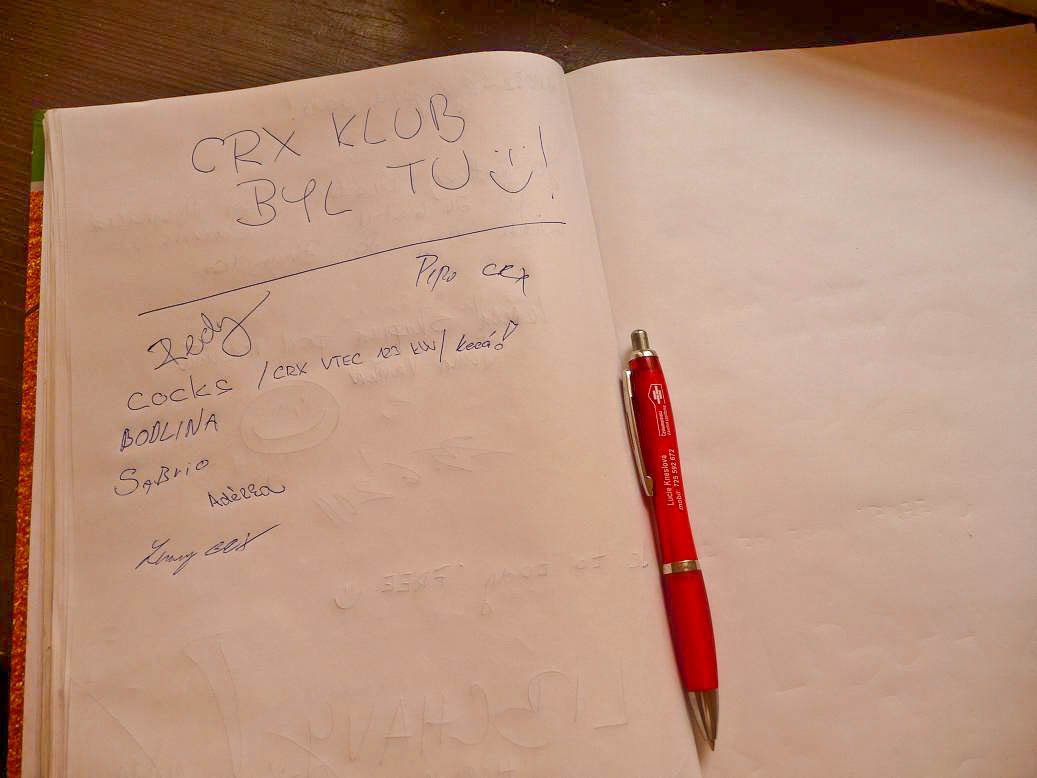 CRX KLUB
BYL TU !
Pipo CRX
Zedy
COCKS /CRX VTEC 123 kW/ kecá!
BODLINA
SABriO
Adélka
CRX
Lucie Kneslova
mobil: 725 592 672